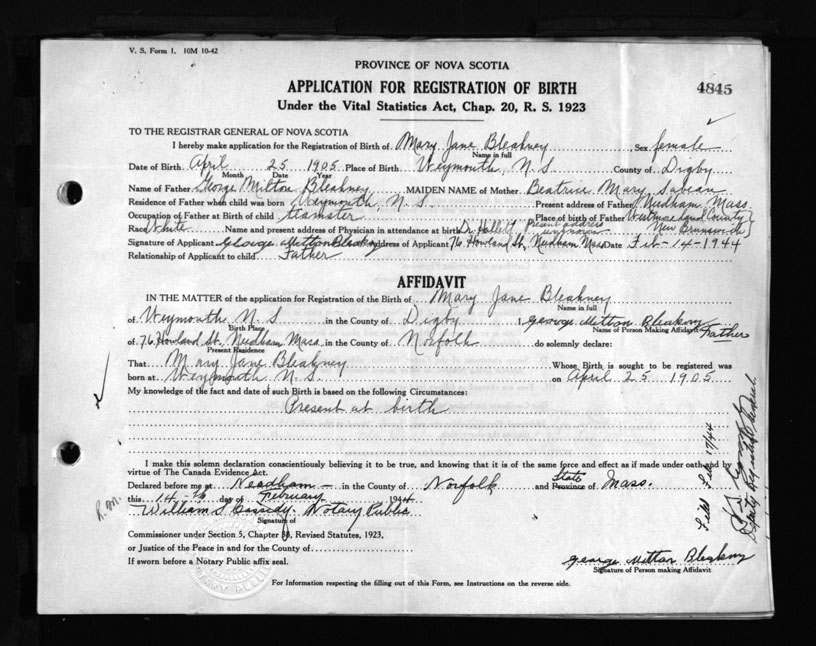 V. S. Form 1. 10M 10-42
PROVINCE OF NOVA SCOTIA
APPLICATION FOR REGISTRATION OF BIRTH
4845
Under the Vital Statistics Act, Chap. 20, R. S. 1923
TO THE REGISTRAR GENERAL OF NOVA SCOTIA
I hereby make application for the Registration of Birth of Mary Jane Bleakney Sex female
Name in full
Date of Birth April 25 1905 Place of Birth Weymouth, N. S County of Digby
Month Date Year
Name of Father George Mitton Bleakney MAIDEN NAME of Mother Beatrice Mary
Residence of Father when child was born Weymouth N. S Present address of Father Needham Mass.
Occupation of Father at Birth of child teamster Place of birth of Father Westmorland County
New Brunswick
Race White Name and present address of Physician in attendance at birth Dr. Hallett Present address unknown
Signature of Applicant George Mitton Bleakny Address of Applicant 76 Howland St, Needham Mass Date Feb-14-1944
Relationship of Applicant to child Father
AFFIDAVIT
IN THE MATTER of the application for Registration of the Birth of Mary Jane Bleakney
of Weymouth N. S in the County of Digby I, George Mitton Bleakny Father
Birth Place Name of Person Making Affidavit
of 76 Howland St, Needham Mass in the County of Norfolk do solemnly declare:
Present Residence
That Mary Jane Bleakney Whose Birth is sought to be registered was
born at Weymouth N. S. on April 25 1905
My knowledge of the fact and date of such Birth is based on the following Circumstances:
Present at birth
I make this solemn declaration conscientiously believing it to be true, and knowing that it is of the same force and effect as if made under oath and by
virtue of The Canada Evidence Act.
Declared before me at Needham in the County of Norfolk and State Province of Mass.
this 14th day of February 1944
William S Cassidy Notary Public
Signature of
Commissioner under Section 5, Chapter 38, Revised Statutes, 1923,
or Justice of the Peace in and for the County of
If sworn before a Notary Public affix seal.
George Mitton Bleakny
Signature of Person making Affidavit
For Information respecting the filling out of this Form, see Instructions on the reverse side.
R.M.
Filed Feb 17/44
Deputy Registrar General